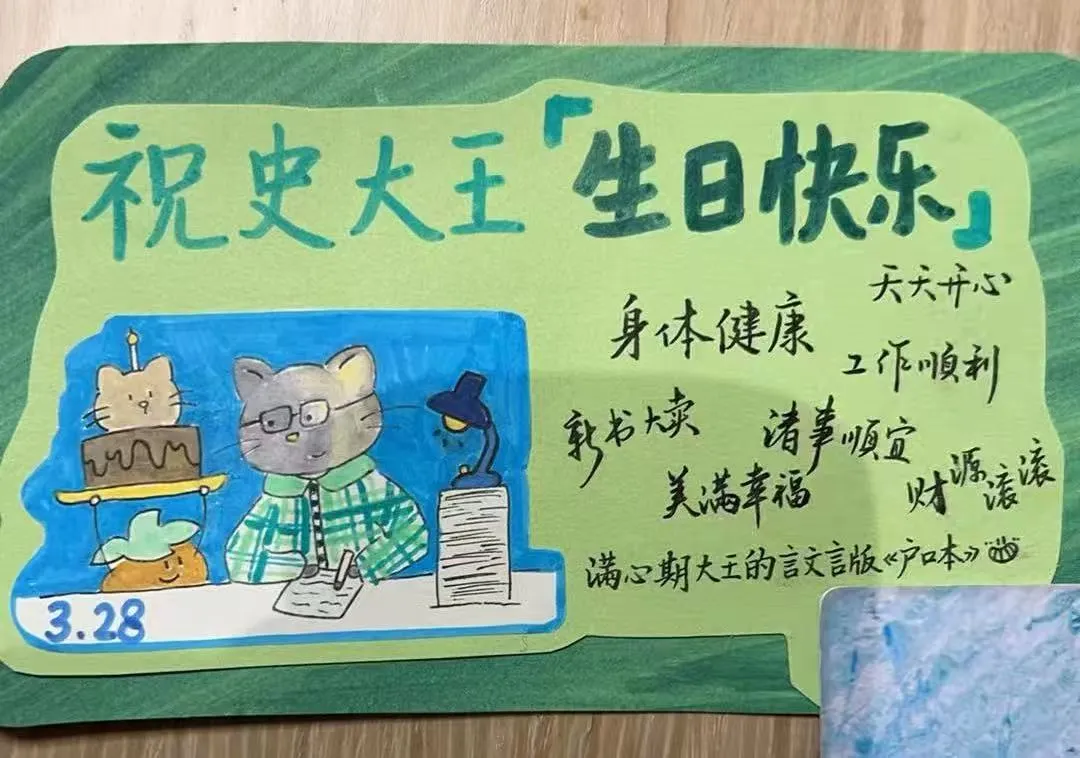 祝史大王「生日快乐」
天天开心
身体健康
工作顺利
新书大卖
诸事顺宜
美满幸福
财源滚滚
满心期大王的言文言版《户口本》
3.28